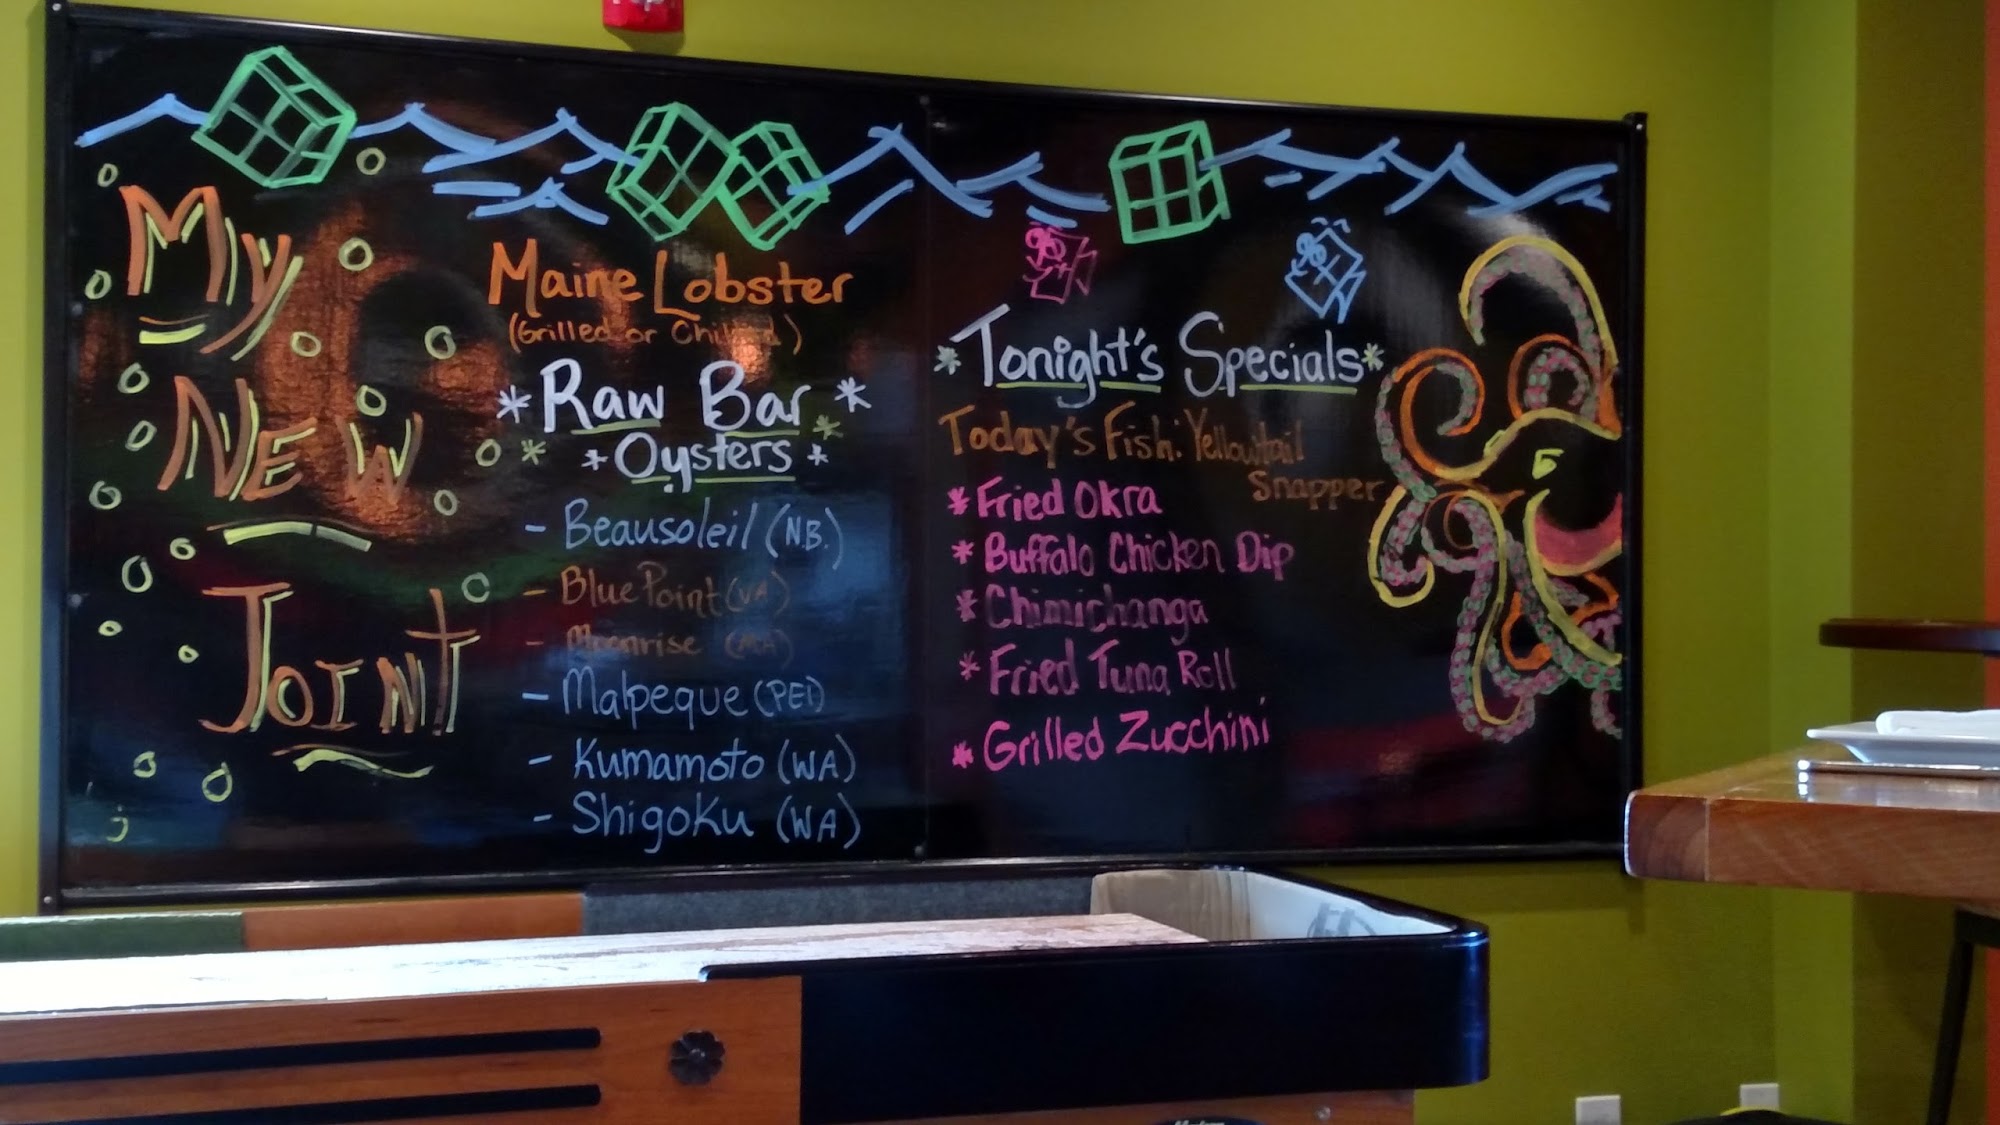 My
New
Joint
Maine Lobster
(Grilled or Chilled)
* Raw Bar *
* Oysters *
- Beausoleil (N.B.)
- Blue Point (VA)
- Moonrise (MA)
- Malpeque (PEI)
- Kumamoto (WA)
- Shigoku (WA)
* Tonight's Specials *
Today's Fish: Yellowtail
Snapper
* Fried Okra
* Buffalo Chicken Dip
* Chimichanga
* Fried Tuna Roll
* Grilled Zucchini